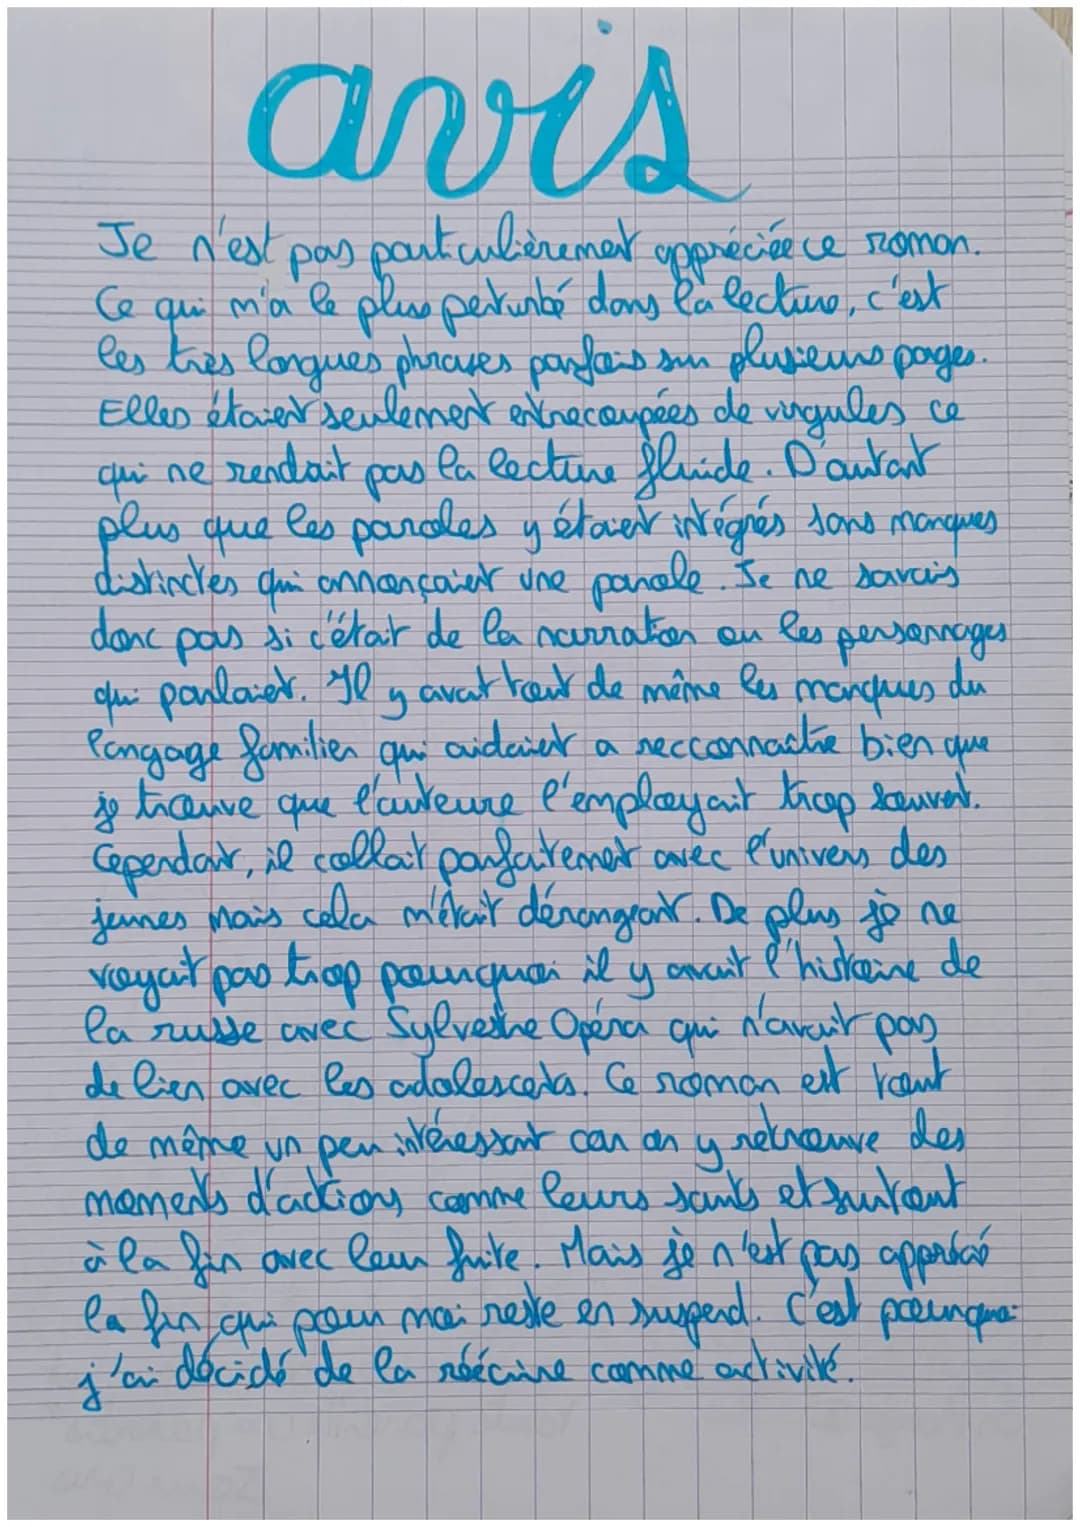 avis
Je n'est pas particulièrement appréciée ce roman.
Ce qui m'a le plus perturbé dans la lecture, c'est
les très longues phrases parfois sur plusieurs pages.
Elles étaient seulement entrecoupées de virgules ce
qui ne rendait pas la lecture fluide. D'autant
plus que les paroles y étaient intégrés sans marques
distinctes qui annonçaient une parole. Je ne savais
donc pas si c'était de la narration ou les personnages
qui parlaient. Il y avait tout de même les marques du
langage familier qui aidaient a recconnaître bien que
je trouve que l'auteure l'employait trop souvent.
Cependant, il collait parfaitement avec l'univers des
jeunes mais cela m'était dérangeant. De plus je ne
voyait pas trop pourquoi il y avait l'histoire de
la russe avec Sylvestre Opéra qui n'avait pas
de lien avec les adolescents. Ce roman est tout
de même un peu intéressant car on y retrouve des
moments d'actions comme leurs sauts et surtout
à la fin avec leur fuite. Mais je n'est pas apprécié
la fin qui pour moi reste en suspend. C'est pourquoi
j'ai décidé de la réécrire comme activité.